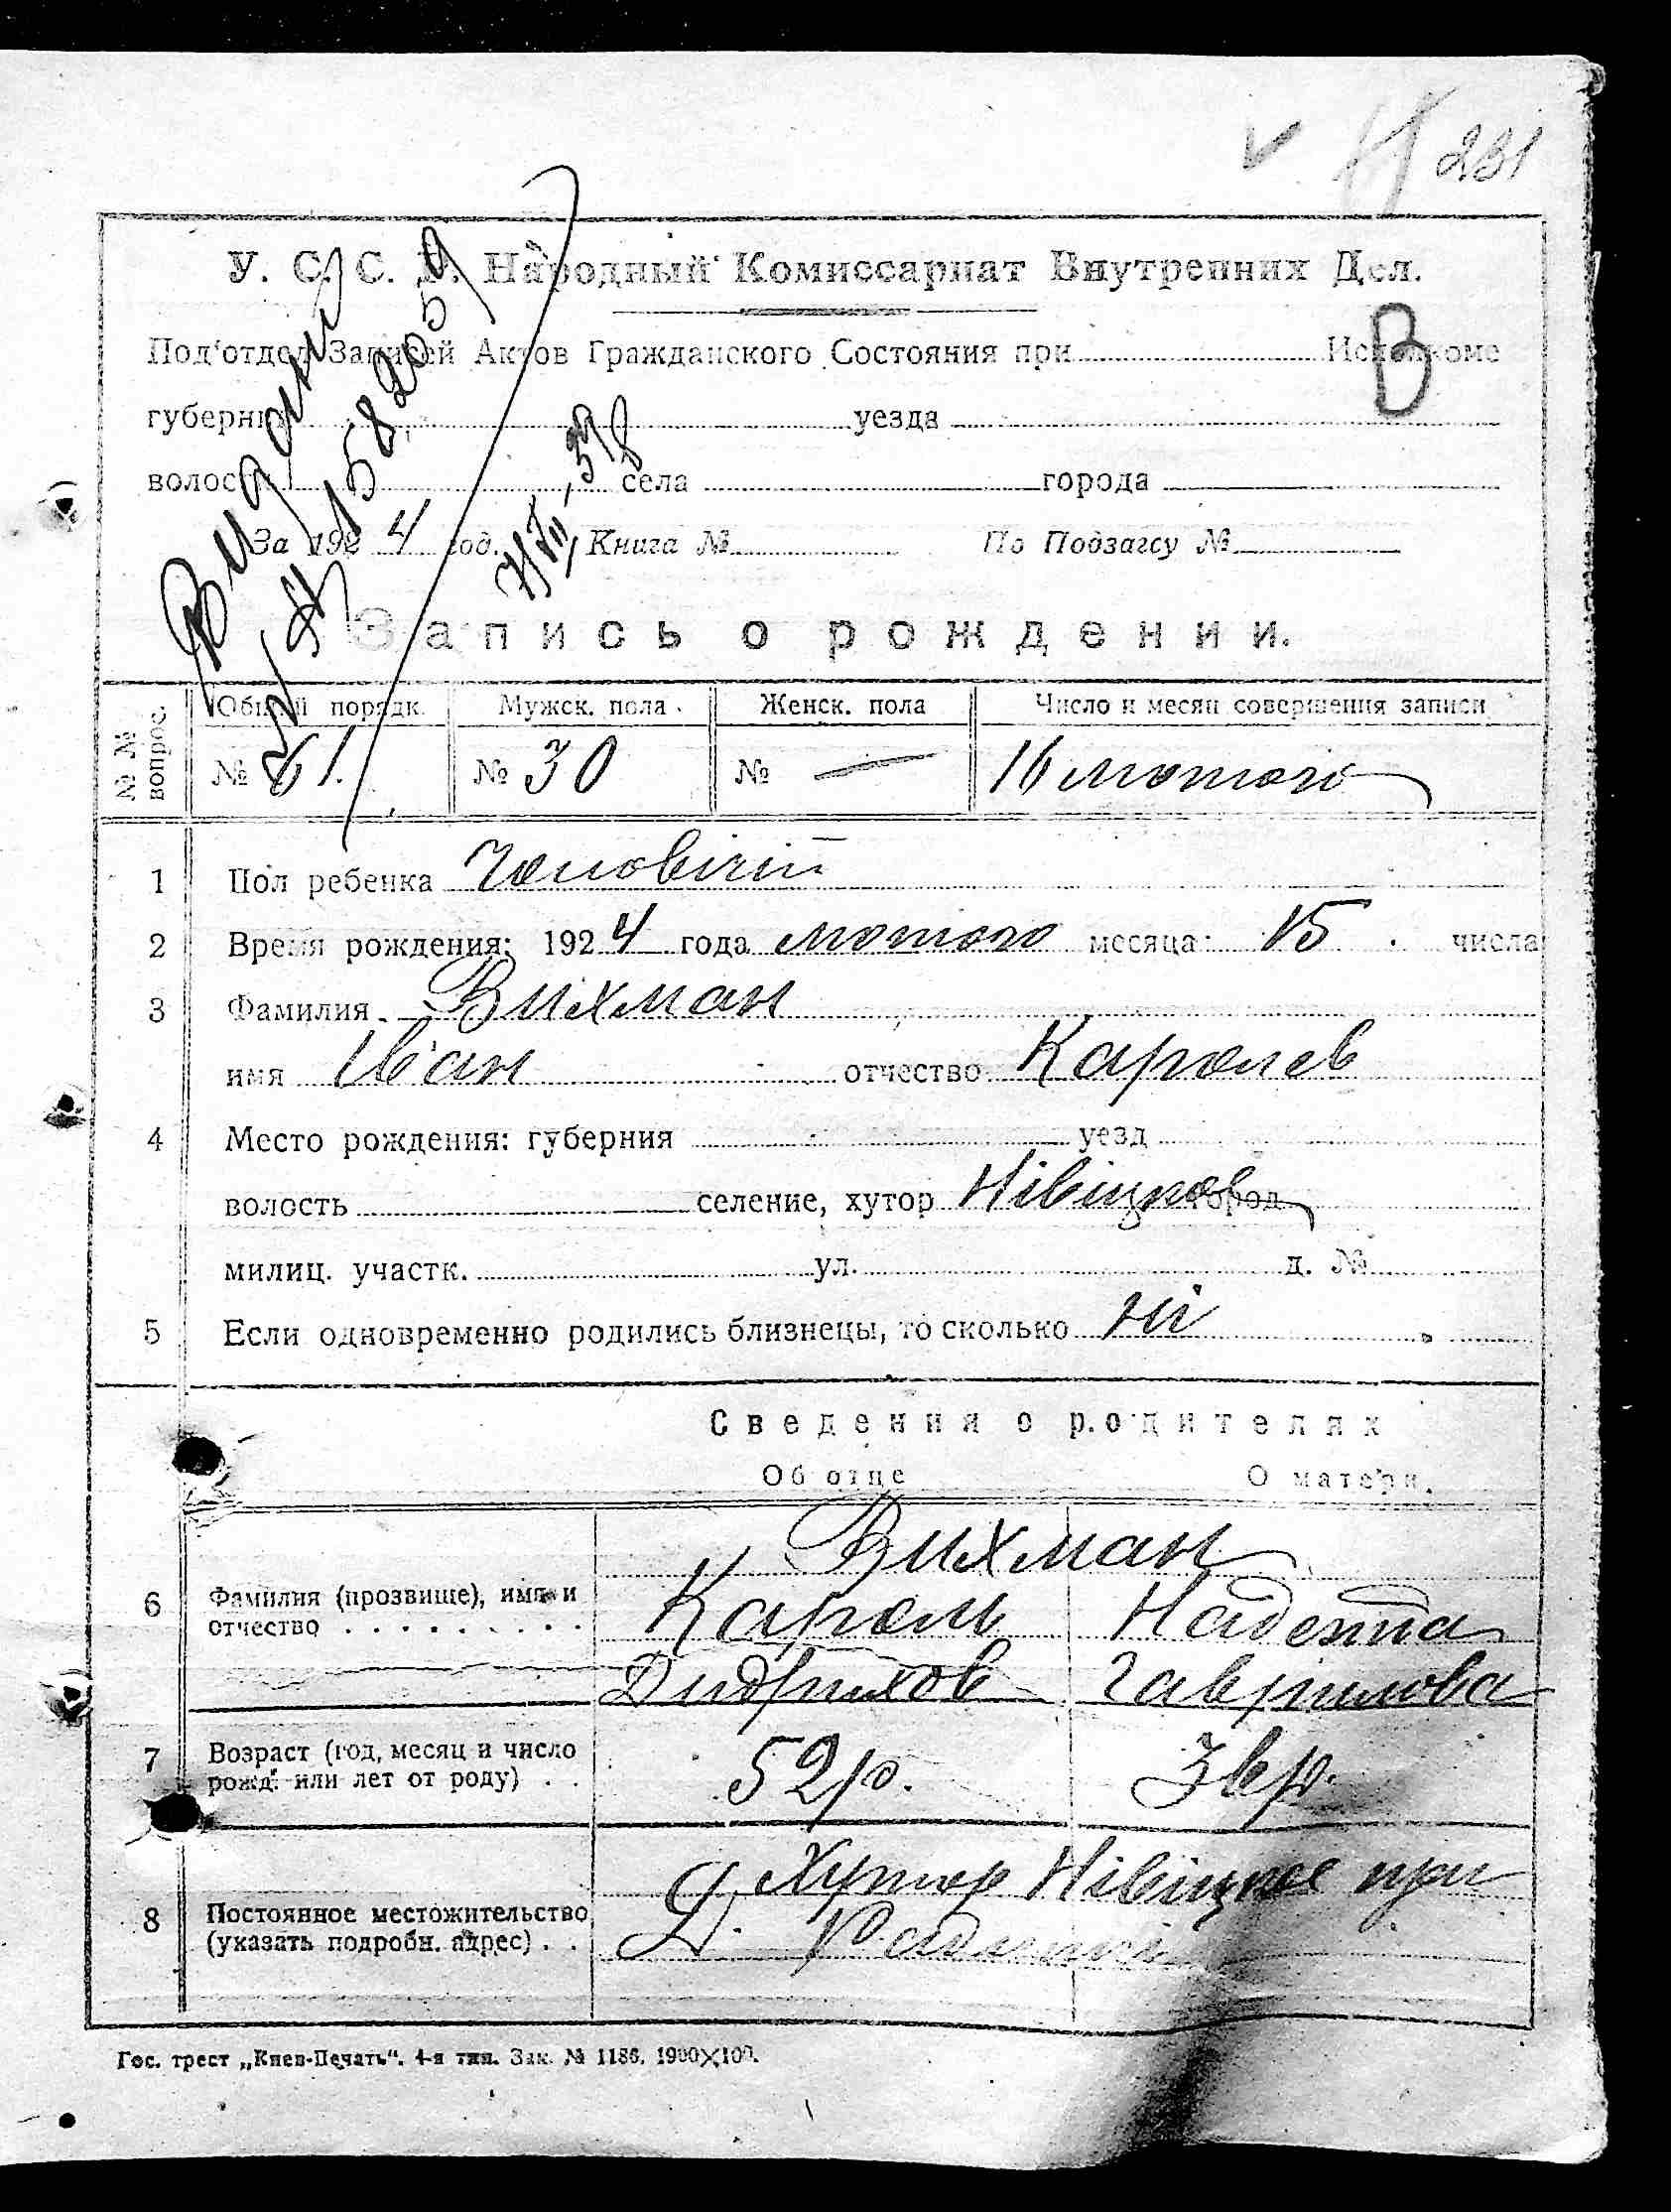 231
У. С. С. Р. Народный Комиссариат Внутренних Дел.
В
Под'отдел Записей Актов Гражданского Состояния при Исполкоме
губернии уезда
волости села города
За 1924 год. Книга № По Подзагсу №
Видани
158
Запись о рождении.
№ № вопрос.
Общий порядк. Мужск. пола. Женск. пола Число и месяц совершения записи
№ 61. № 30 № — 16 лютого
1 Пол ребенка Чоловічій
2 Время рождения: 1924 года лютого месяца 15 числа
3 Фамилия Вихман
имя Іван отчество Каролев
4 Место рождения: губерния уезд
волость селение, хутор Нівіцкое город
милиц. участк. ул. д. №
5 Если одновременно родились близнецы, то сколько ні
Сведения о родителях
Об отце О матери.
Вихман
6 Фамилия (прозвище), имя и отчество Кароль Надежда
Дидрихов Гаврилова
7 Возраст (год, месяц и число рожд. или лет от роду) 52 р. 36 р.
Хутор Нівіцкое при
8 Постоянное местожительство (указать подробн. адрес) Д.
Гос. трест „Киев-Печать". 4-я тип. Зак. № 1186. 1900×100.